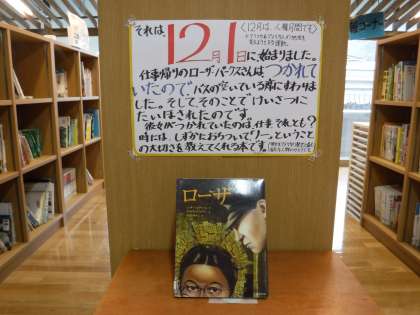 それは、
12月1日に始まりました。
仕事帰りのローザ・パークスさんはつかれて
いたのでバスの空いている席にすわりま
した。そしてそのことでけいさつに
たいほされたのです。
彼女がつかれていたのは、仕事それとも?
時には しずかに おちついて「ノー」ということ
の大切さを教えてくれる本です。
ローザ